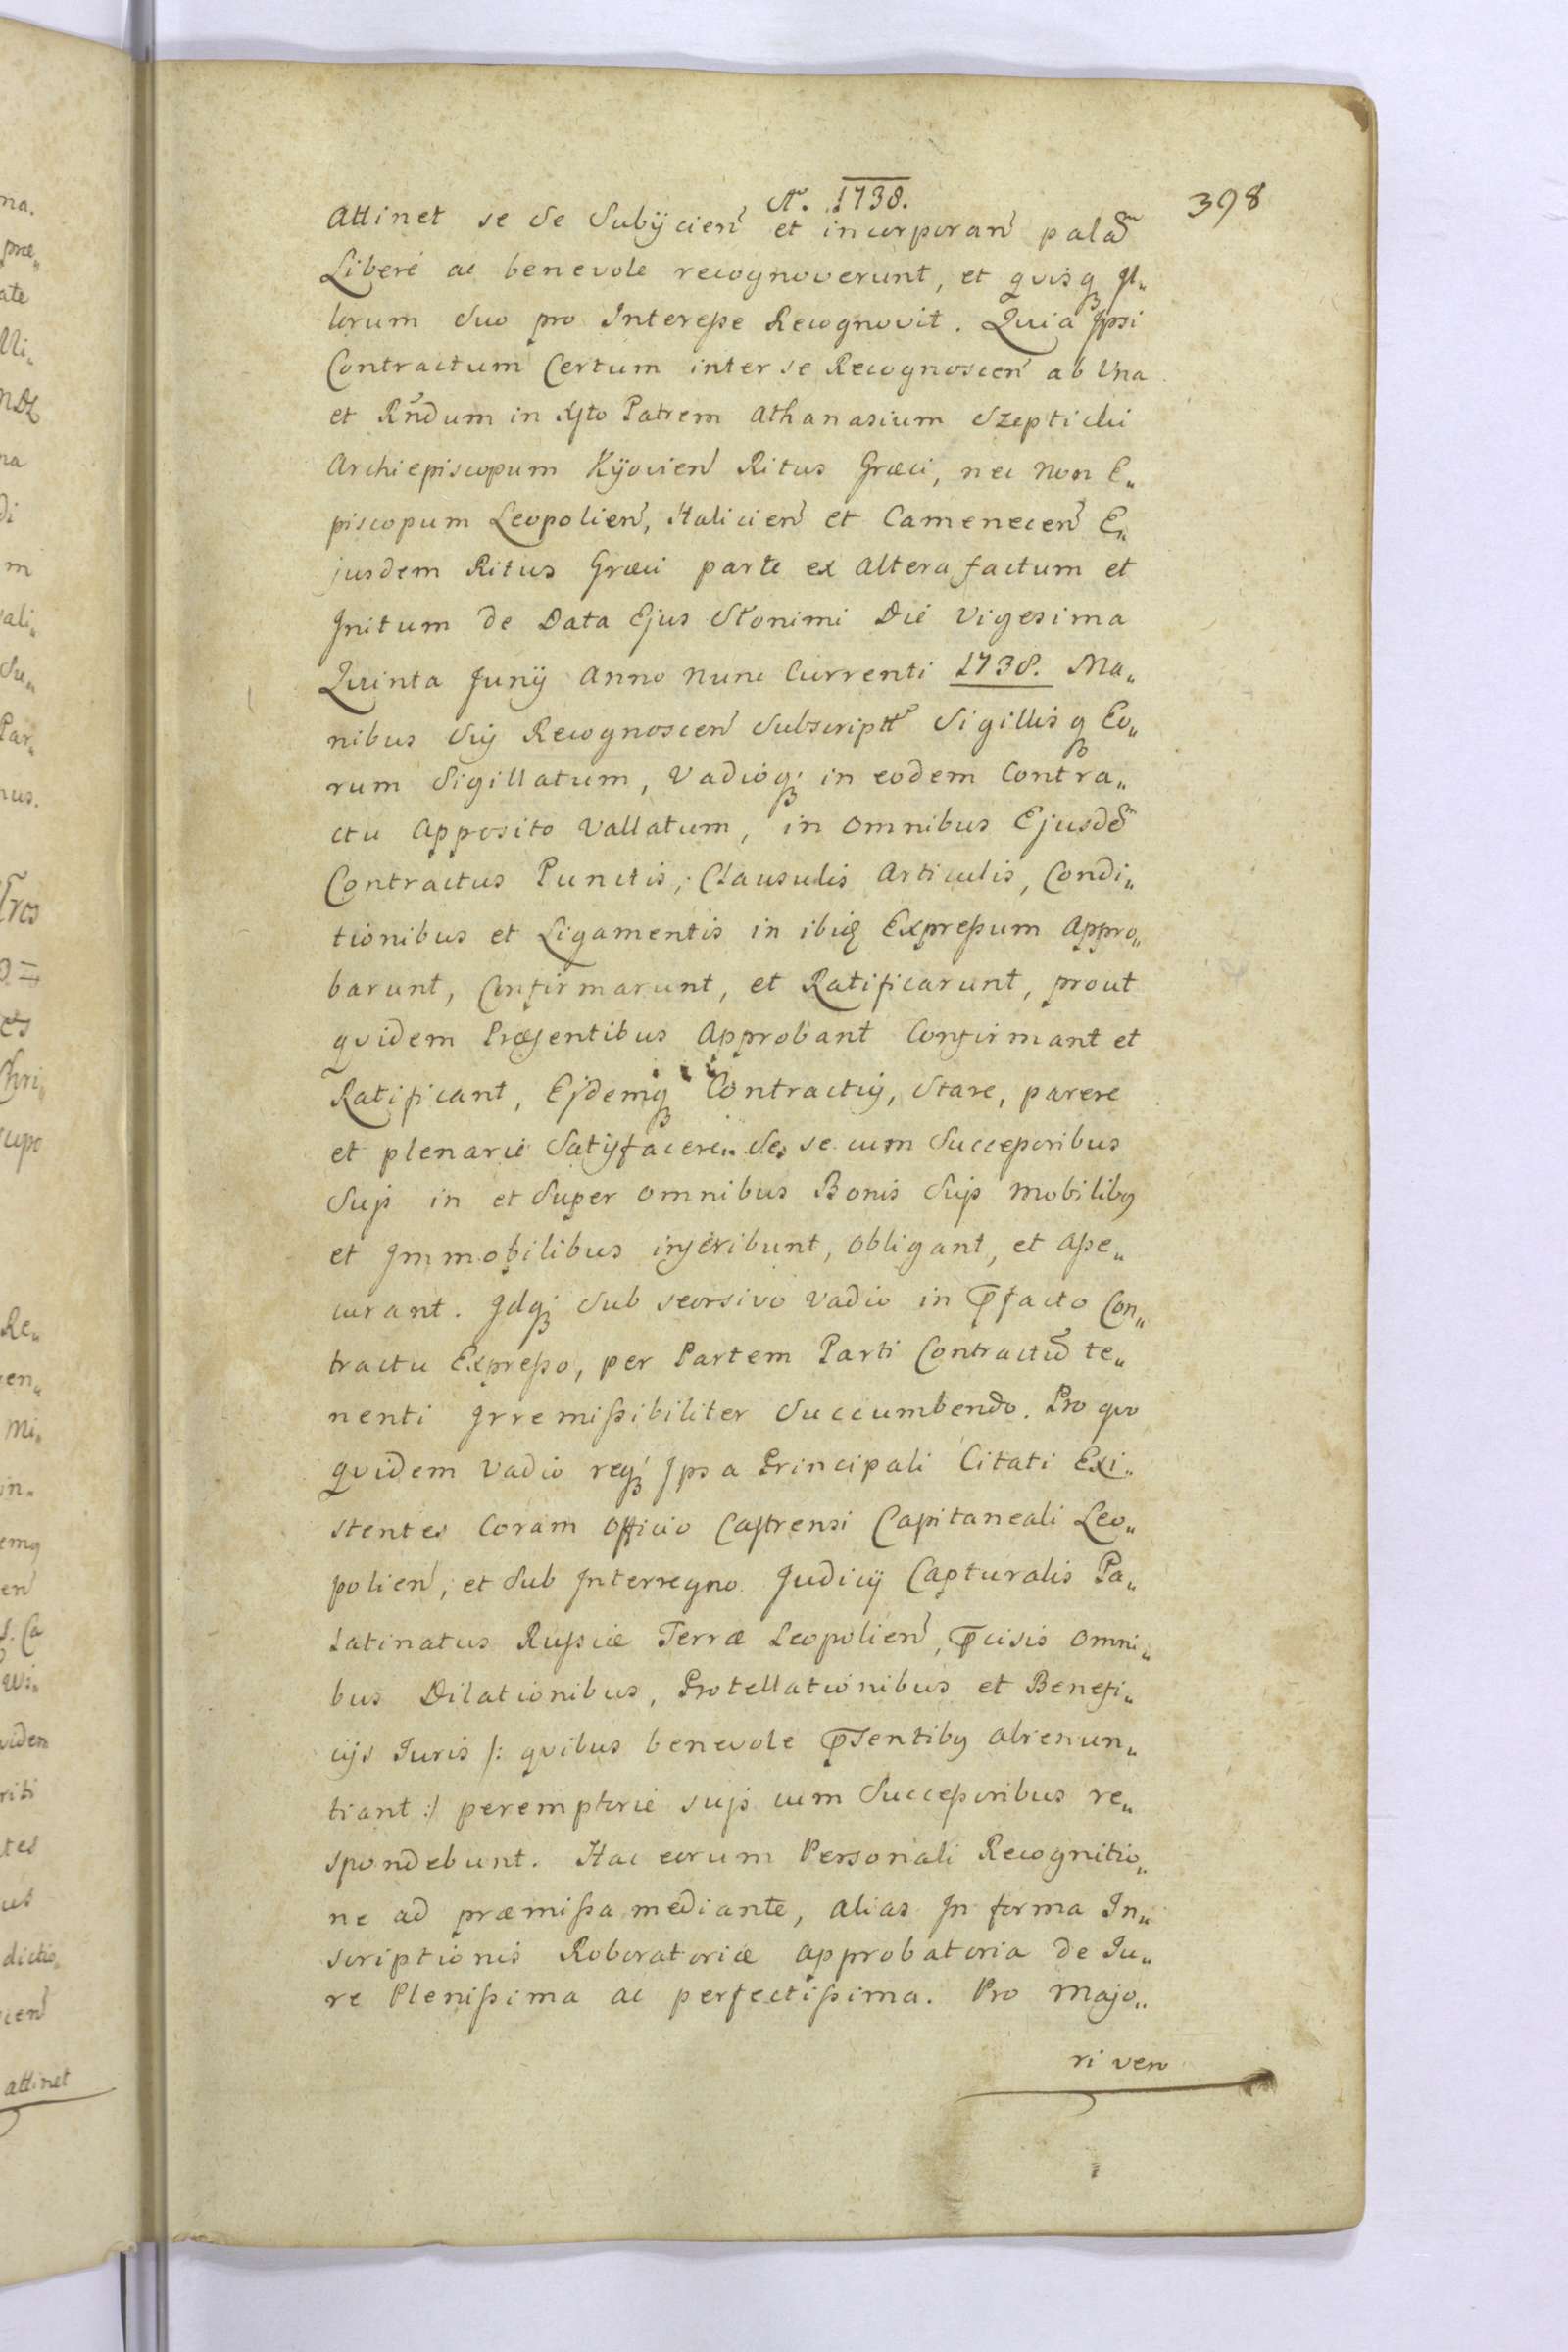 Aº. 1738.
398
Attinet se se Subijcien̄ et incorporan̄ palam̄
Liberè ac benevole recognoverunt, et quisq; Il„
lorum suo pro Interesse Recognovit. Quia Ipsi
Contractum Certum inter se Recognoscen̄ ab Una
et Rñdum in Xsto Patrem Athanasium Szepticki
Archiepiscopum Kÿovien̄ Ritus Græci, nec non E„
piscopum Leopolien̄, Halicien̄ et Camenecen̄ E„
jusdem Ritus Græci parte ex Altera factum et
Initum de Data Ejus Słonimi Die Vigesima
Quinta Junÿ Anno nunc Currenti 1738. Ma„
nibus Suis Recognoscen̄ Subscript̄ Sigillisq; Eo„
rum Sigillatum, Vadioq; in eodem Contra„
ctu Apposito Vallatum, in omnibus Ejusdē
Contractus Punctis, Clausulis Articulis, Condi„
tionibus et Ligamentis in ibiq; Expressum Appro„
barunt, Confirmarunt, et Ratificarunt, prout
quidem Præsentibus Approbant Confirmant et
Ratificant, Eidemq; Contractui, Stare, parere
et plenariè Satisfacere„ se se cum Successoribus
Suis in et Super omnibus Bonis Suis Mobilibus
et Immobilibus inscribunt, obligant, et Asse„
curant. Idq; Sub seorsivo Vadio in p̄facto Con„
tractu Expresso, per Partem Parti Contractū te„
nenti Irremissibiliter Succumbendo. Pro quo
quidem Vadio req; Ipsa Principali Citati Exi„
stentes Coram Officio Castrensi Capitaneali Leo„
polien̄, et Sub Interregno Judicij Capturalis Pa„
latinatus Russiæ Terræ Leopolien̄, p̄cisis omni„
bus Dilationibus, Protellationibus et Benefi„
cijs Juris /: quibus benevole p̄sentibus abrenun„
tiant :/ peremptoriè suis cum Successoribus re„
spondebunt. Hac eorum Personali Recognitio„
ne ad præmissa mediante, alias In forma In„
scriptionis Roboratoriæ approbatoria de Ju„
re Plenissima ac perfectissima. Pro Majo„
ri vero
na.
præ„
ate
na
di
m
ali„
Su„
Par„
Re„
en„
Mi„
in„
en̄
ites
us
dictio„
cen̄
attinet